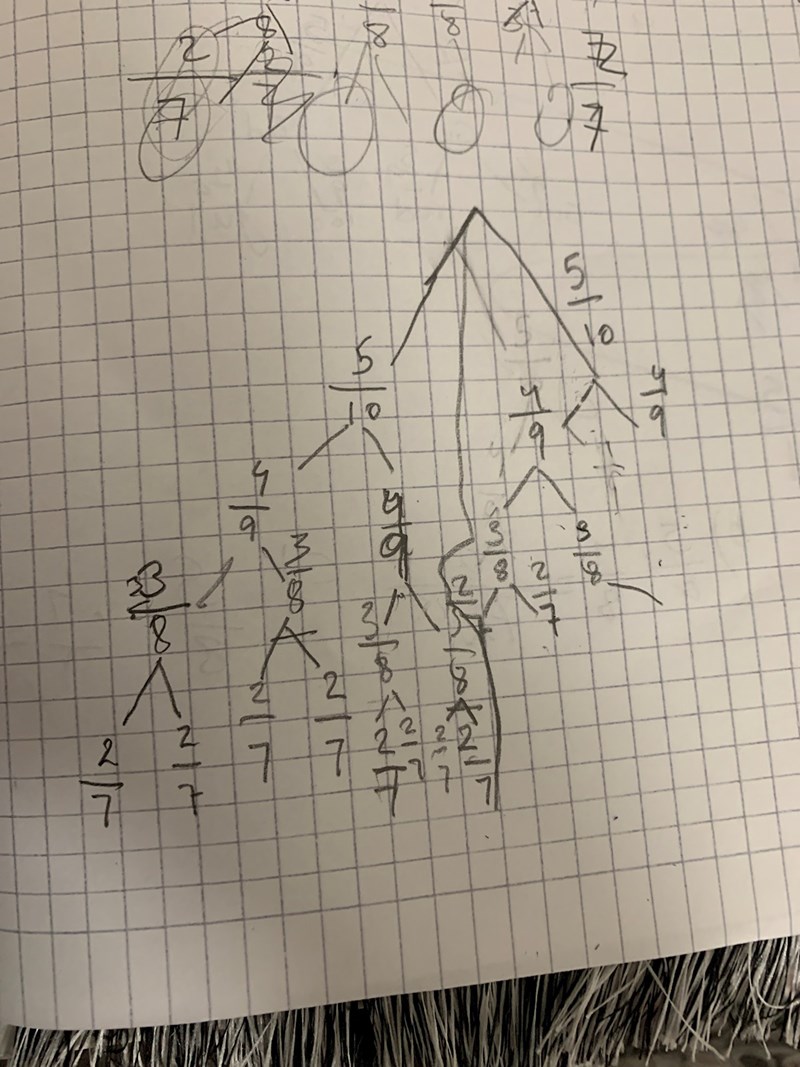 2/7
8
8
8
72/7
5/10
5/10
4/9
4/9
4/9
4/9
3/8
3/8
3/8
3/8
33/8
3/8
2/7
2/7
2/7
2/7
2/7
2/7
2/7
2/7
2/7
2/7